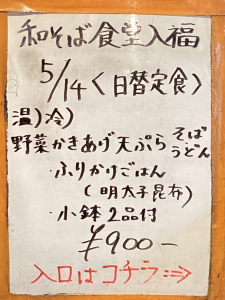 和そば食堂入福
5/14〈日替定食〉
温)冷)
野菜かきあげ天ぷら そば うどん
・ふりかけごはん
(明太子昆布)
・小鉢2品付
¥900-
入口はコチラ⇒